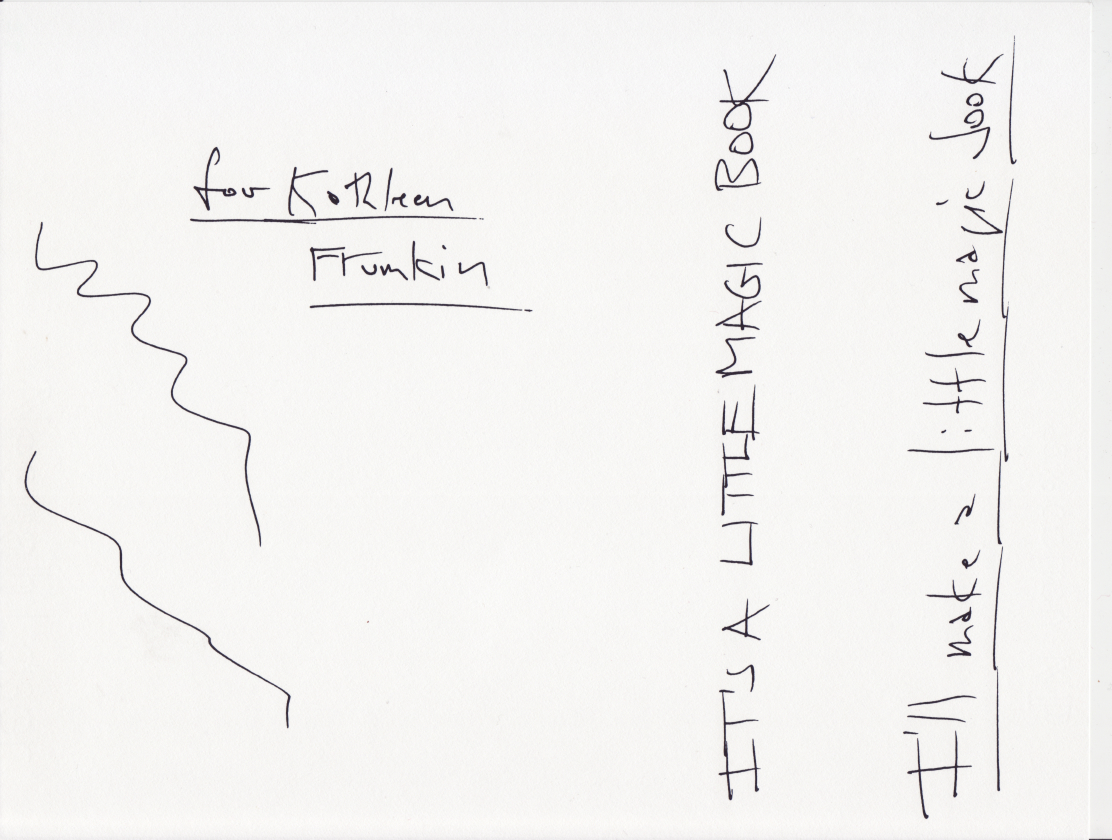 for Kathleen
Frumkin
IT'S A LITTLE MAGIC BOOK
I'll make a little magic book